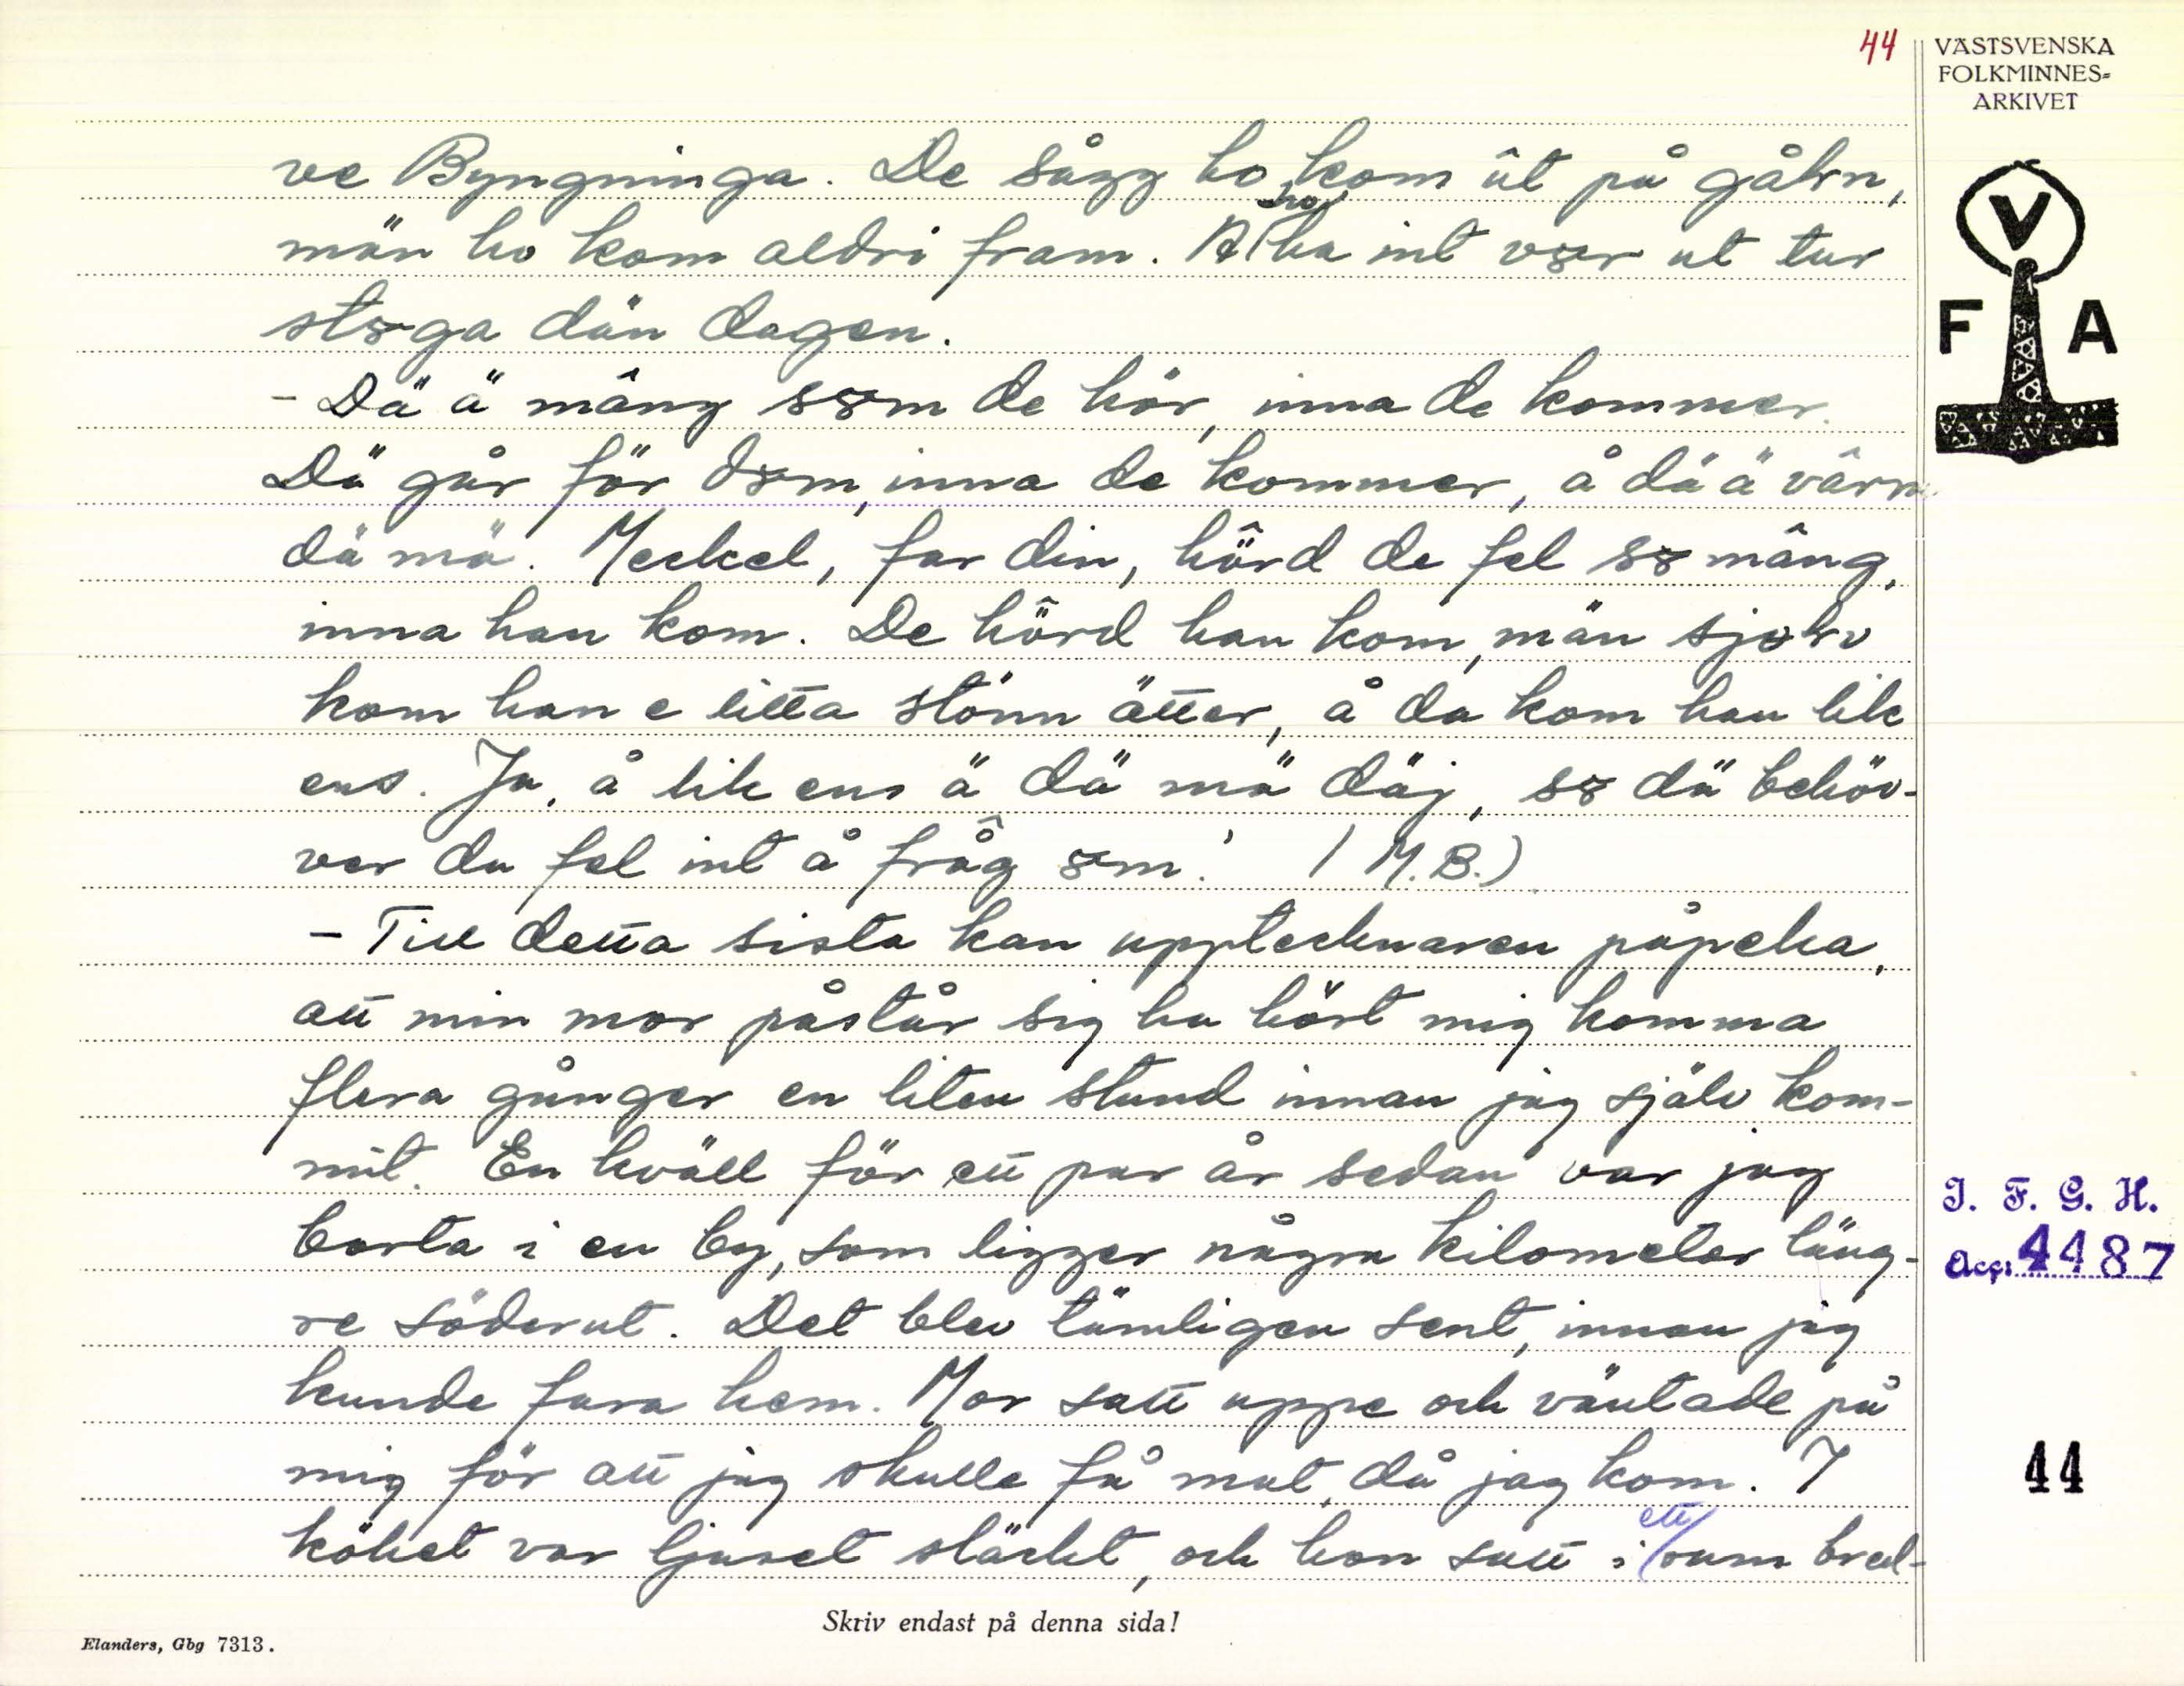 44
VÄSTSVENSKA
FOLKMINNES=
ARKIVET
V
F A
ve Byngninga. De sågg ho kom ût på gåłn,
män ho kom aldri fram. A hôj ha int vꝏr ut tur
stꝏga dän dagen.
- Dä ä mâng sꝏm de hör, inna de kommer.
Dä går för dꝏm, inna de kommer, å dä ä vârn
dä mä. Meckel, far din, hörd de fel sꝏ mâng,
inna han kom. De hörd han kom, män sjøłv
kom han e litta stönn ätter, å da kom han lik
ens. Ja, å lik ens ä dä mä däj, sꝏ dä behöv-
ver du fel int å fråg ꝏm! (M.B.)
- Till detta sista kan upptecknaren påpeka,
att min mor påstår sig ha hört mig komma
flera gånger en liten stund innan jag själv kom-
mit. En kväll för ett par år sedan var jag
borta i en by, som ligger några kilometer läng-
re söderut. Det blev tämligen sent, innan jag
kunde fara hem. Mor satt uppe och väntade på
mig för att jag skulle få mat, då jag kom. I
köket var ljuset släckt, och hon satt i ett rum bred-
I. F. G. H.
Acc. 4487
44
Skriv endast på denna sida!
Elanders, Gbg 7313.